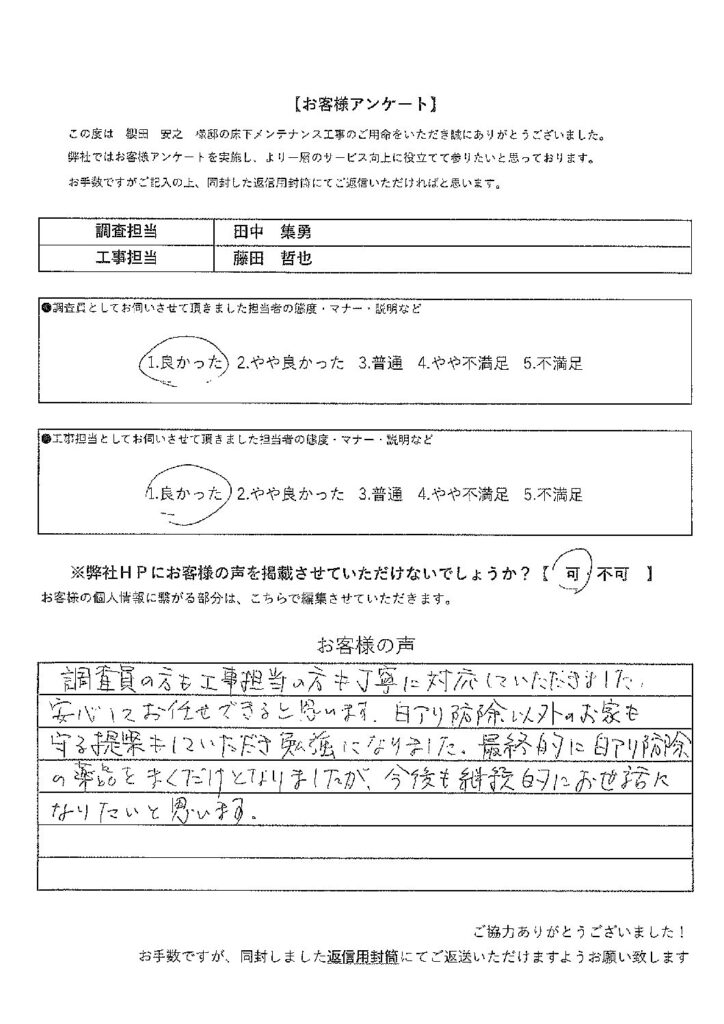 【お客様アンケート】
この度は 観田 安之 様邸の床下メンテナンス工事のご用命をいただき誠にありがとうございました。
弊社ではお客様アンケートを実施し、より一層のサービス向上に役立てて参りたいと思っております。
お手数ですがご記入の上、同封した返信用封筒にてご返信いただければと思います。
調査担当 田中 集勇
工事担当 藤田 哲也
●調査員としてお伺いさせて頂きました担当者の態度・マナー・説明など
1.良かった 2.やや良かった 3.普通 4.やや不満足 5.不満足
●工事担当としてお伺いさせて頂きました担当者の態度・マナー・説明など
1.良かった 2.やや良かった 3.普通 4.やや不満足 5.不満足
※弊社HPにお客様の声を掲載させていただけないでしょうか?【 可・不可 】
お客様の個人情報に繋がる部分は、こちらで編集させていただきます。
お客様の声
調査員の方も工事担当の方も丁寧に対応していただきました。
安心してお任せできると思います。白アリ防除以外のお家も
守る提案もしていただき勉強になりました。最終的に白アリ防除
の薬品をまくだけとなりましたが、今後も継続的にお世話に
なりたいと思います。
ご協力ありがとうございました!
お手数ですが、同封しました返信用封筒にてご返送いただけますようお願い致します